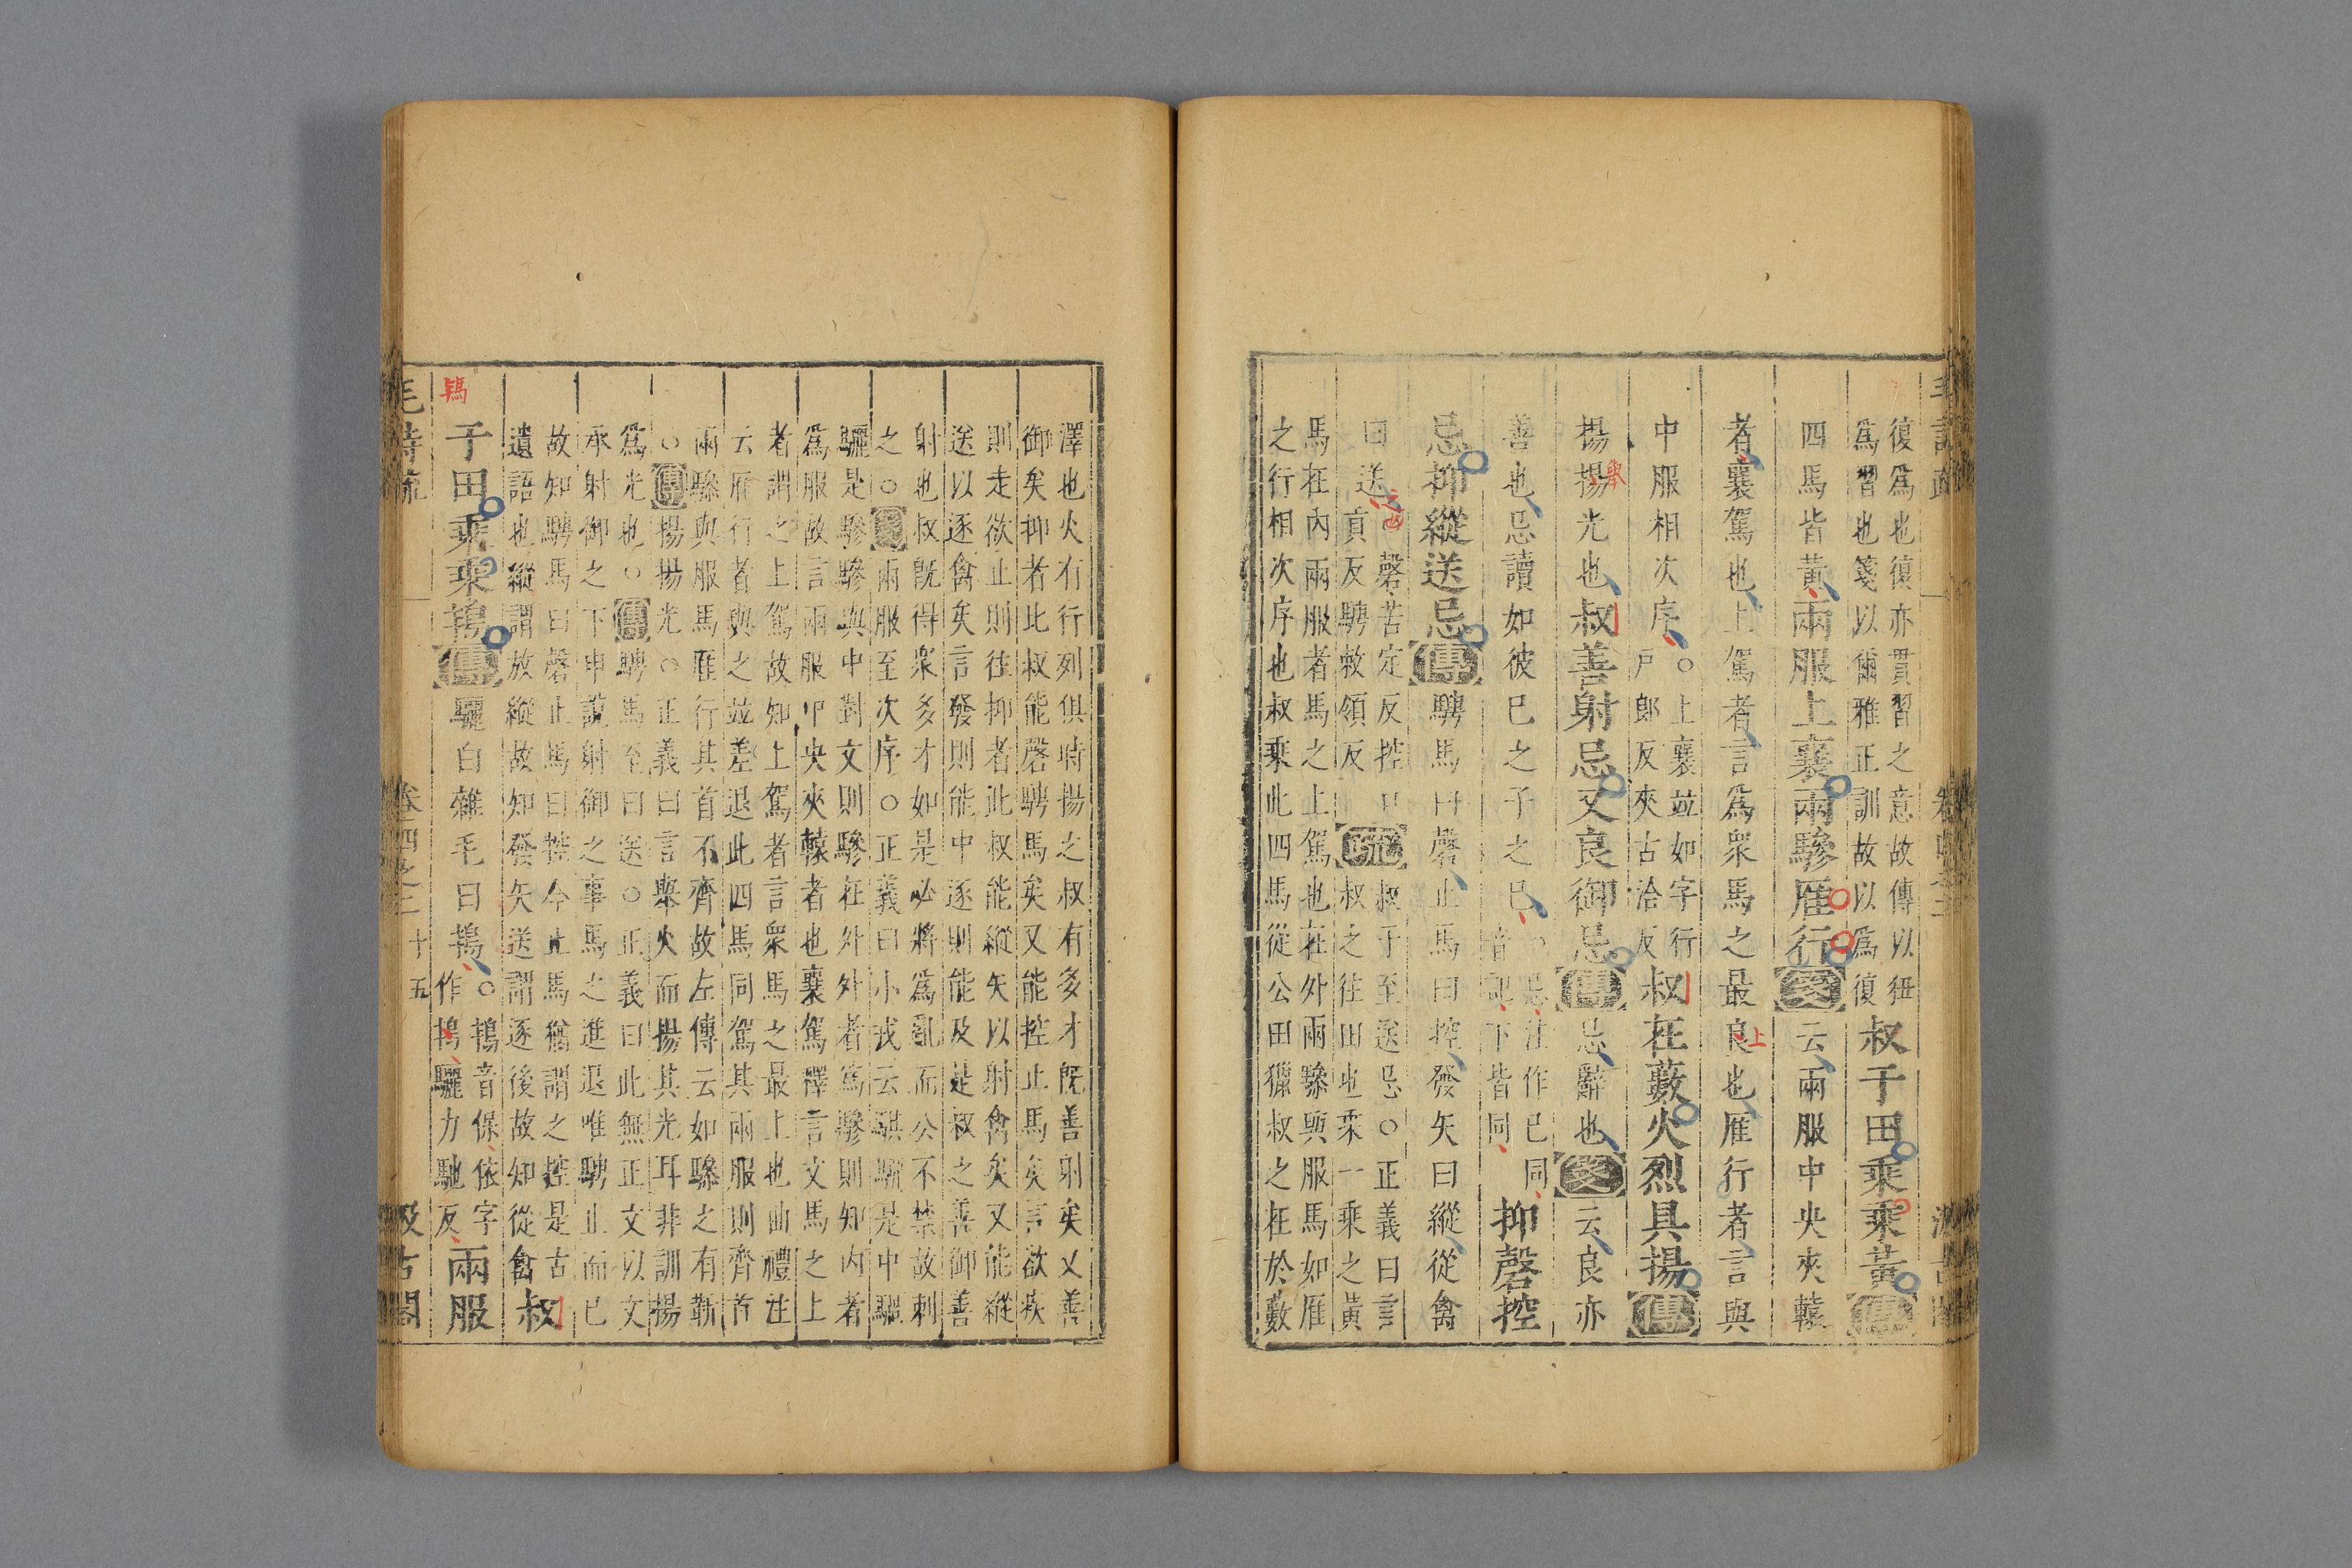 復爲也復亦貫習之意故傳以狃
爲習也箋以爾雅正訓故以爲復
叔于田乘乘黃傳
四馬皆黃兩服上襄兩驂鴈行箋云兩服中央夾轅
者襄駕也上駕者言爲衆馬之最良也鴈行者言與
上
中服相次序
○上襄竝如字行
戸郎反夾古洽反
叔在藪火烈具揚傳
揚揚光也叔善射忌又良御忌傳忌辭也箋云良亦
舉
善也忌讀如彼已之子之已
○忌注作已同
音記下皆同
抑磬控
忌抑縱送忌傳騁馬曰磬止馬曰控發矢曰縱從禽
曰送
磬苦定反控口
貢反騁敕領反
疏
叔于至送忌○正義曰言
叔之往田也乘一乘之黃
馬在內兩服者馬之上駕也在外兩驂與服馬如鴈
之行相次序也叔乘此四馬從公田獵叔之在於藪
澤也火有行列俱時揚之叔有多才既善射矣又善
御矣抑者此叔能磬騁馬矣又能控止馬矣言欲疾
則走欲止則往抑者此叔能縱矢以射禽矣又能縱
送以逐禽矣言發則能中逐則能及是叔之善御善
射也叔既得衆多才如是必將爲亂而公不禁故刺
之○箋兩服至次序○正義曰小戎云騏駵是中騧
驪是驂驂與中對文則驂在外外者爲驂則知內者
爲服故言兩服中央夾轅者也襄駕釋言文馬之上
者謂之上駕故知上駕者言衆馬之最上也曲禮注
云鴈行者與之竝差退此四馬同駕其兩服則齊首
兩驂與服馬鴈行其首不齊故左傳云如驂之有靳
○傳揚揚光○正義曰言舉火而揚其光耳非訓揚
爲光也○傳騁馬至曰送○正義曰此無正文以文
承射御之下申說射御之事馬之進退唯騁止而已
故知騁馬曰磬止馬曰控今止馬猶謂之控是古
遺語也縱謂放縱故知發矢送謂逐後故知從禽
叔
于田乘乘鴇傳驪白雜毛曰鴇
○鴇音保依字
作鴇驪力馳反
兩服
鴇
毛詩疏
卷四之二
十五
汲古閣